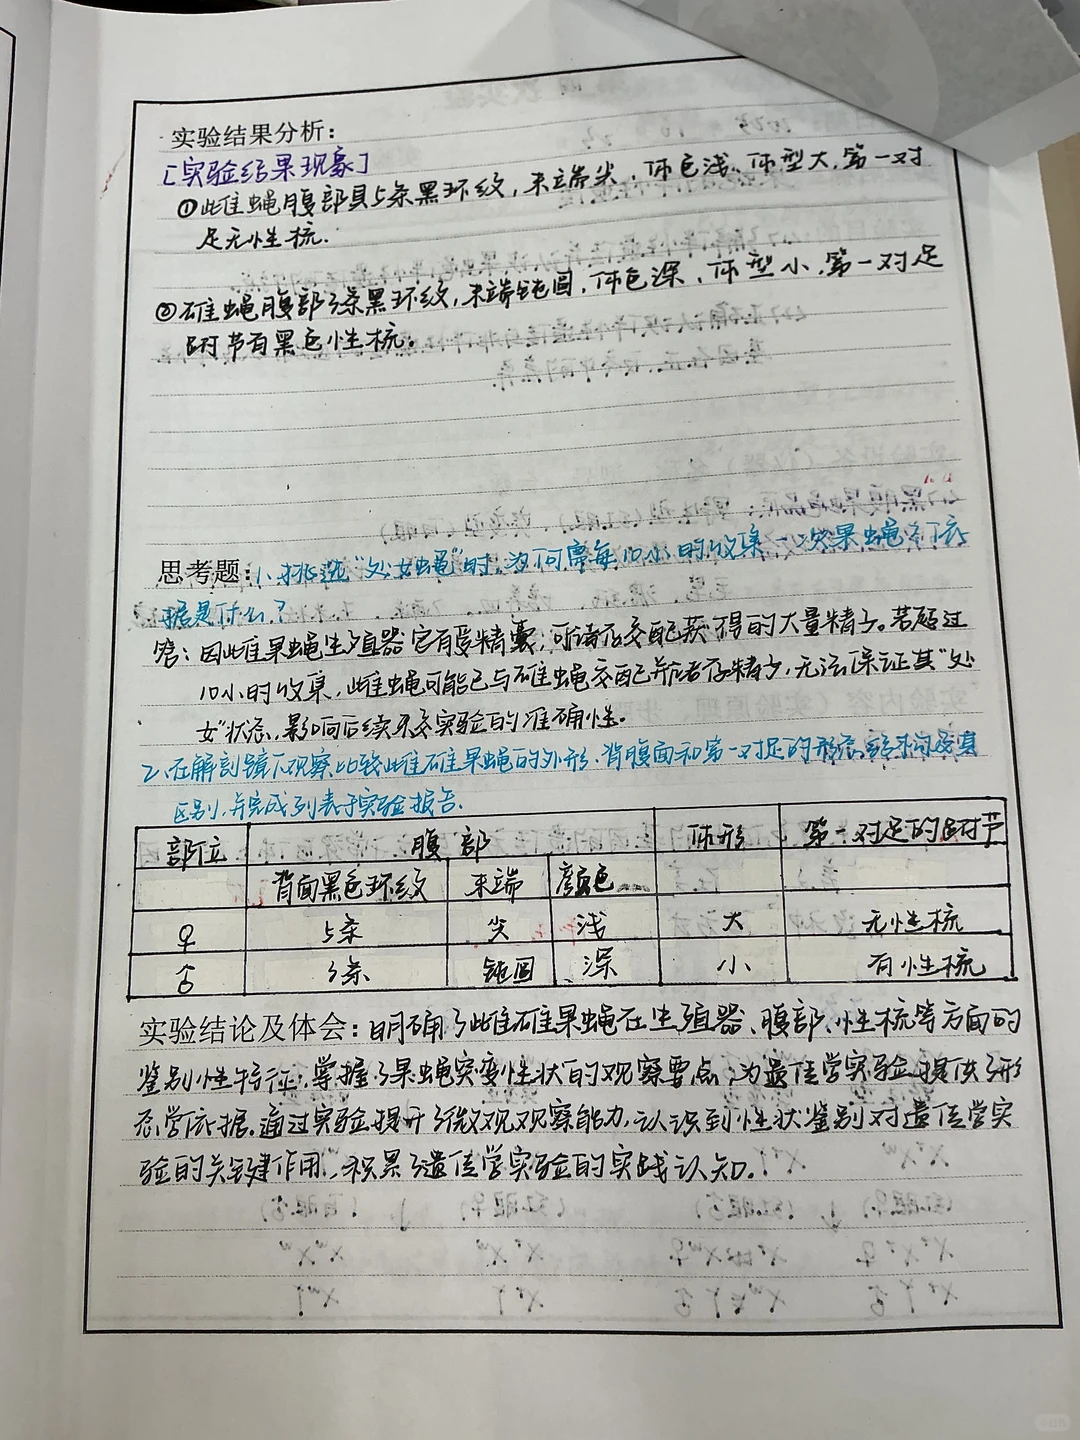 实验结果分析:
[实验结果现象]
①雌蝇腹部具5条黑环纹,末端尖,体色浅、体型大,第一对
足无性梳.
②雄蝇腹部3条黑环纹,末端钝圆,体色深、体型小,第一对足
跗节有黑色性梳。
思考题:1.挑选“处女蝇”时,为何需每10小时收集一次果蝇?依
据是什么?
答:因雌果蝇生殖器官有受精囊,可储存交配获得的大量精子。若超过
10小时收集,雌蝇可能已与雄蝇交配并储存精子,无法保证其“处
女”状态,影响后续杂交实验的准确性。
2.在解剖镜下观察比较雌雄果蝇的外形、背腹面和第一对足的形态
区别,并完成列表于实验报告.
部位 腹部 体形 第一对足的跗节
背面黑色环纹 末端 颜色
♀ 5条 尖 浅 大 无性梳
♂ 3条 钝圆 深 小 有性梳
实验结论及体会:明确了雌雄果蝇在生殖器、腹部、性梳等方面的
鉴别性特征;掌握了果蝇突变性状的观察要点,为遗传学实验提供了形
态学依据。通过实验提升了微观观察能力,认识到性状鉴别对遗传学实
验的关键作用,积累了遗传学实验的实践认知。